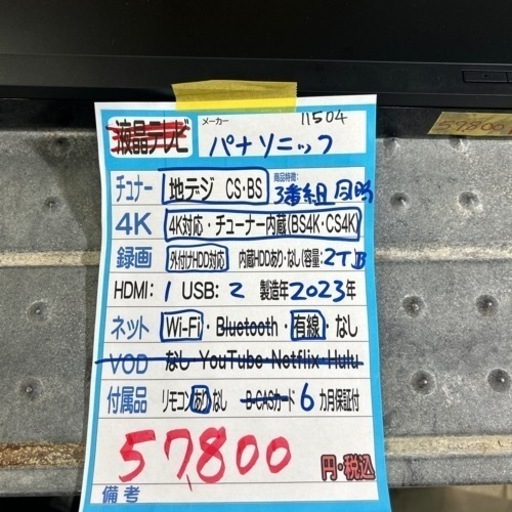 57800
液晶テレビ メーカー 11504
パナソニック
チュナー 地テジ CS・BS 商品特徴: 3番組同時
4K 4K対応・チューナー内蔵(BS4K・CS4K)
録画 外付けHDD対応 内蔵HDDあり・なし(容量: 2TB
HDMI: 1 USB: 2 製造年2023年
ネット Wi-Fi・Bluetooth・有線・なし
VOD なし YouTube Netflix Hulu
付属品 リモコンありなし B-CASカード 6カ月保証付
57,800 円・税込
備考